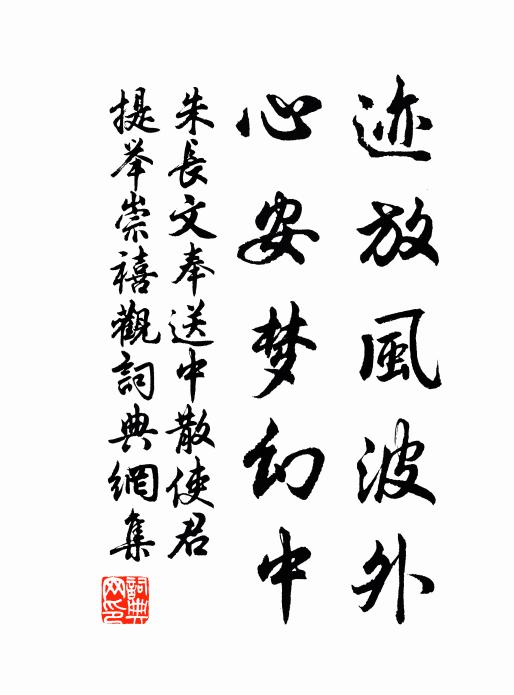 迹放風波外
心安梦幻中
朱長文奉送中散使君
提举崇禧觀詞典網集
詞典网印